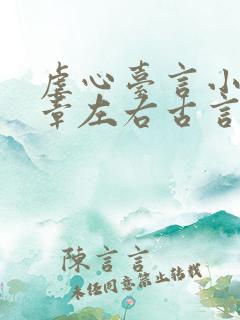 虐心臺言小
章左右古言
陳言言
未經同意禁止轉載